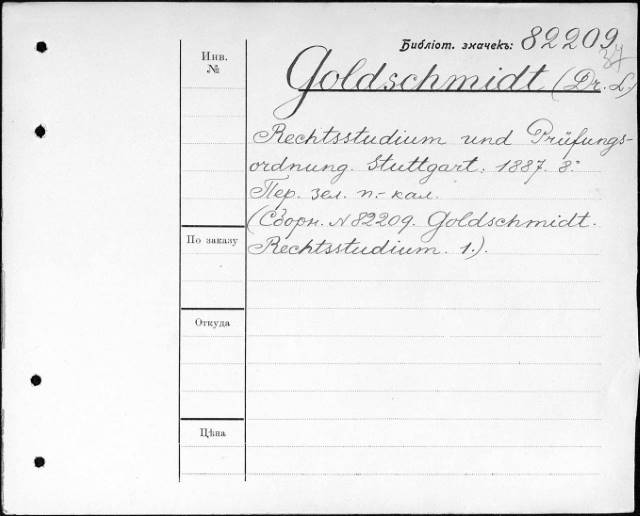 Библіот. значекъ: 82209
37
Инв.
№
Goldschmidt (Dr. L.)
Rechtsstudium und Prüfungs-
ordnung. Stuttgart. 1887. 8°.
Пер. зел. п.-кал.
(Сборн. № 82209. Goldschmidt.
По заказу
Rechtsstudium. 1.).
Откуда
Цѣна